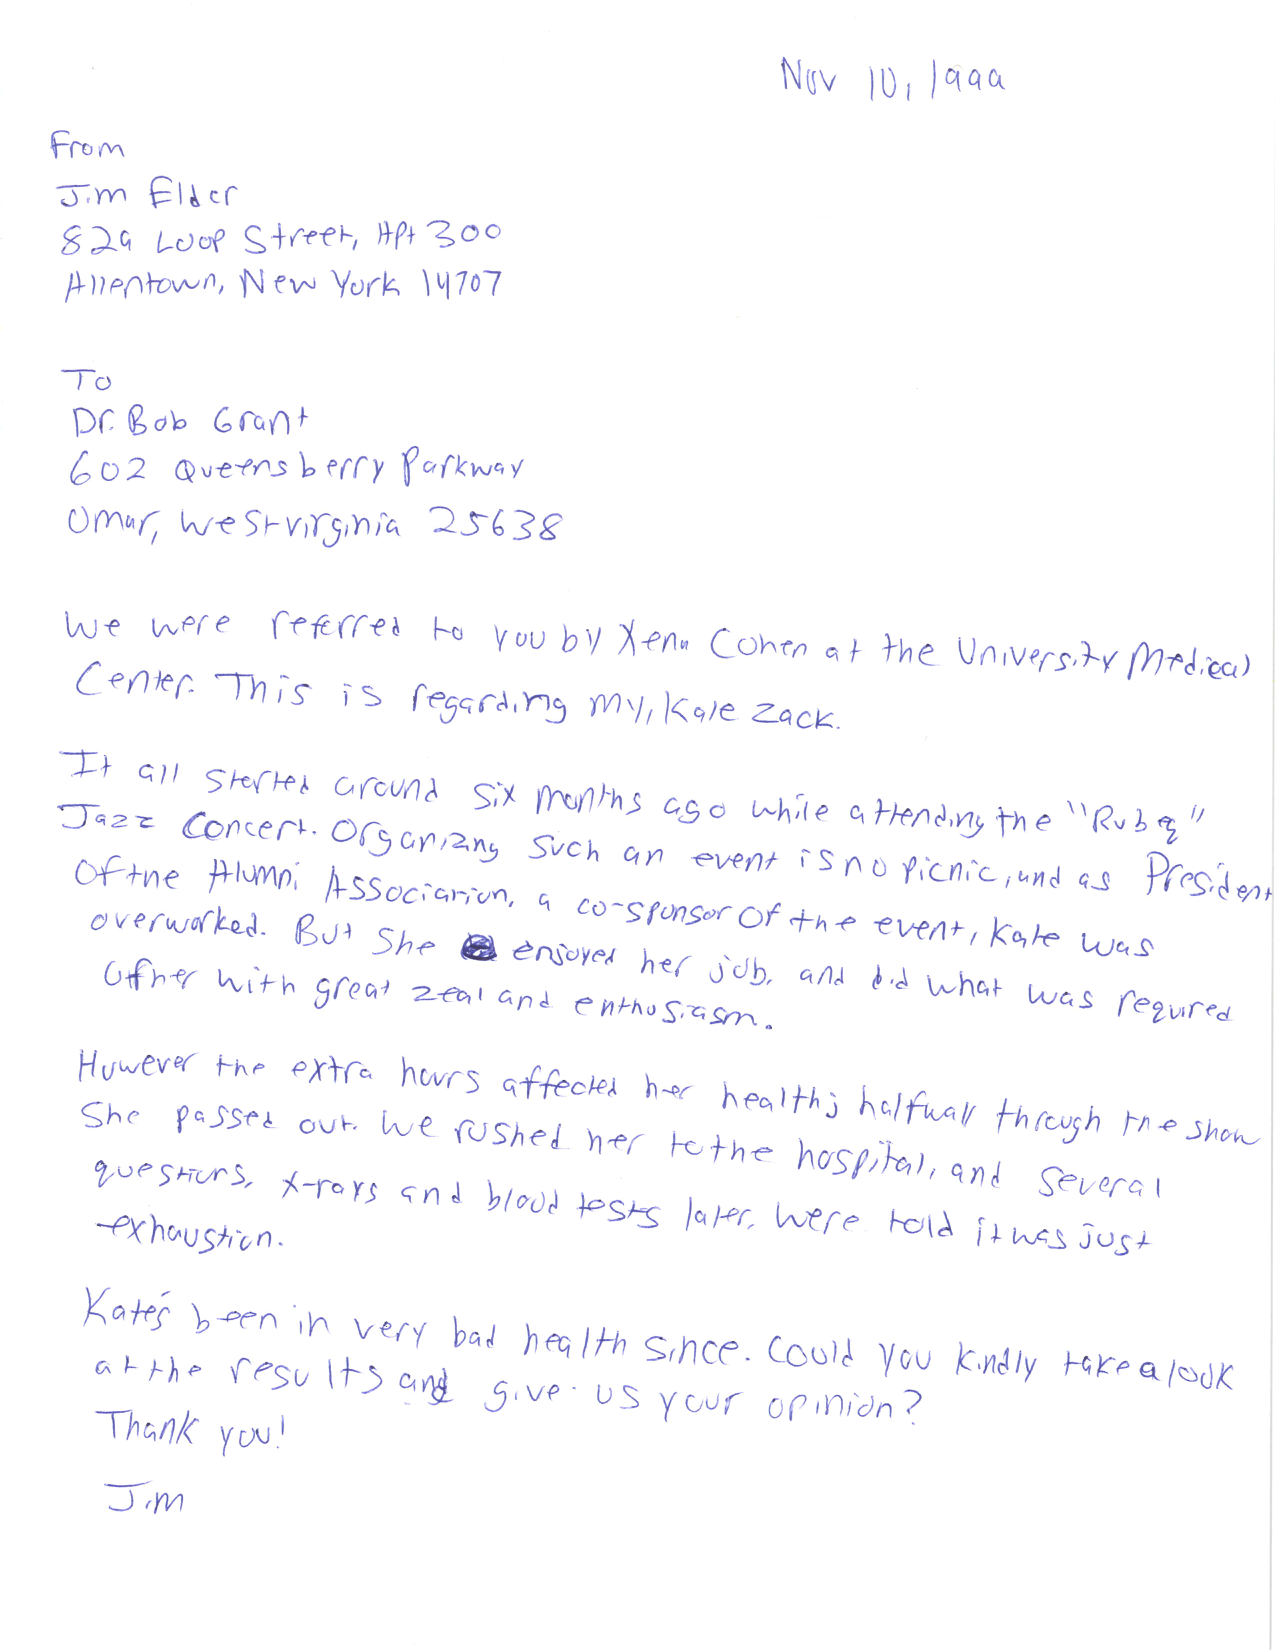 Nov 10, 1999
From
Jim Elder
829 Loop Street, Apt 300
Allentown, New York 14707
To
Dr. Bob Grant
602 Queensberry Parkway
Omar, West Virginia 25638
We were referred to you by Xena Cohen at the University Medical
Center. This is regarding my, Kate Zack.
It all started around six months ago while attending the "Rubeq"
Jazz Concert. Organizing such an event is no picnic, and as President
of the Alumni Association, a co-sponsor of the event, Kate was
overworked. But she enjoyed her job, and did what was required
of her with great zeal and enthusiasm.
However the extra hours affected her health; halfway through the show
she passed out. We rushed her to the hospital, and several
questions, x-rays and blood tests later, were told it was just
exhaustion.
Kate's been in very bad health since. Could you kindly take a look
at the results and give us your opinion?
Thank you!
Jim